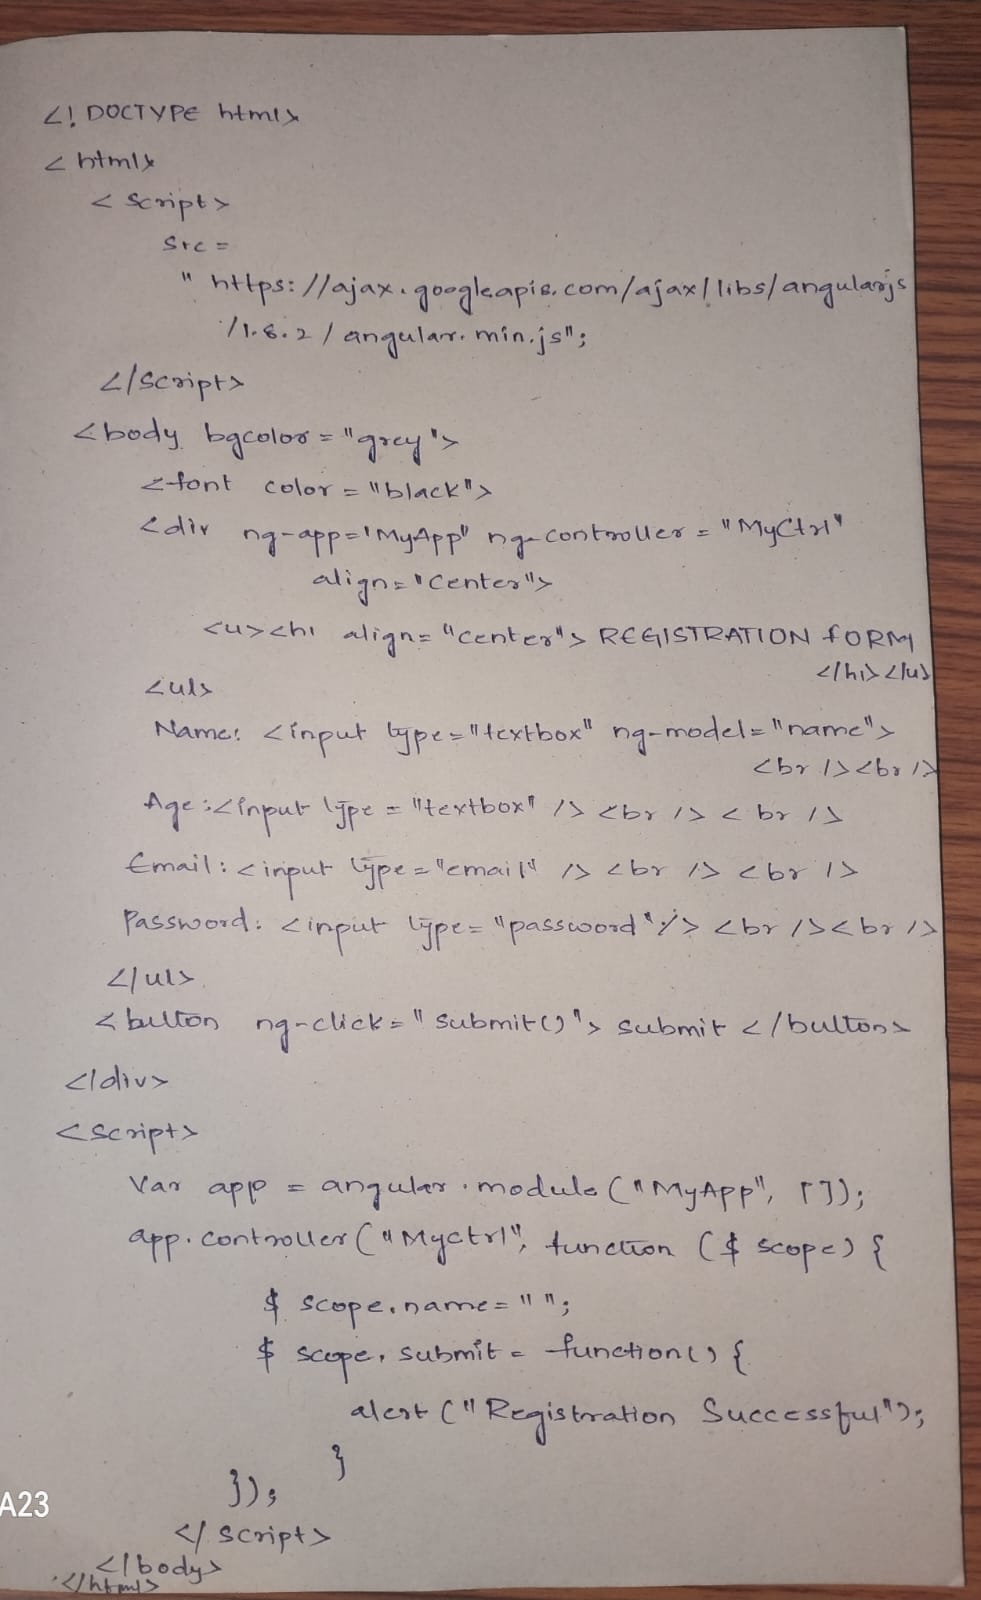 <! DOCTYPE html>
<html>
<script>
src =
"https://ajax.googleapis.com/ajax/libs/angularjs
/1.8.2/angular.min.js";
</script>
<body bgcolor = "grey">
<font color = "black">
<div ng-app='MyApp" ng-controller = "MyCtrl"
align="center">
<u><h1 align="center"> REGISTRATION FORM
</h1></u>
<ul>
Name: <input type="textbox" ng-model="name">
<br /><br />
Age :<input type = "textbox" /> <br /> < br />
Email: <input type="email" /> <br /> <br />
Password: <input type= "password"/> <br /><br />
</ul>
<button ng-click= "submit()"> submit </button>
</div>
<script>
Var app = angular.module("MyApp", []);
app.controller("Myctrl", function ($ scope) {
$ scope.name = " ";
$ scope.submit = function() {
alert ("Registration Successful");
}
});
</script>
</body>
</html>
A23